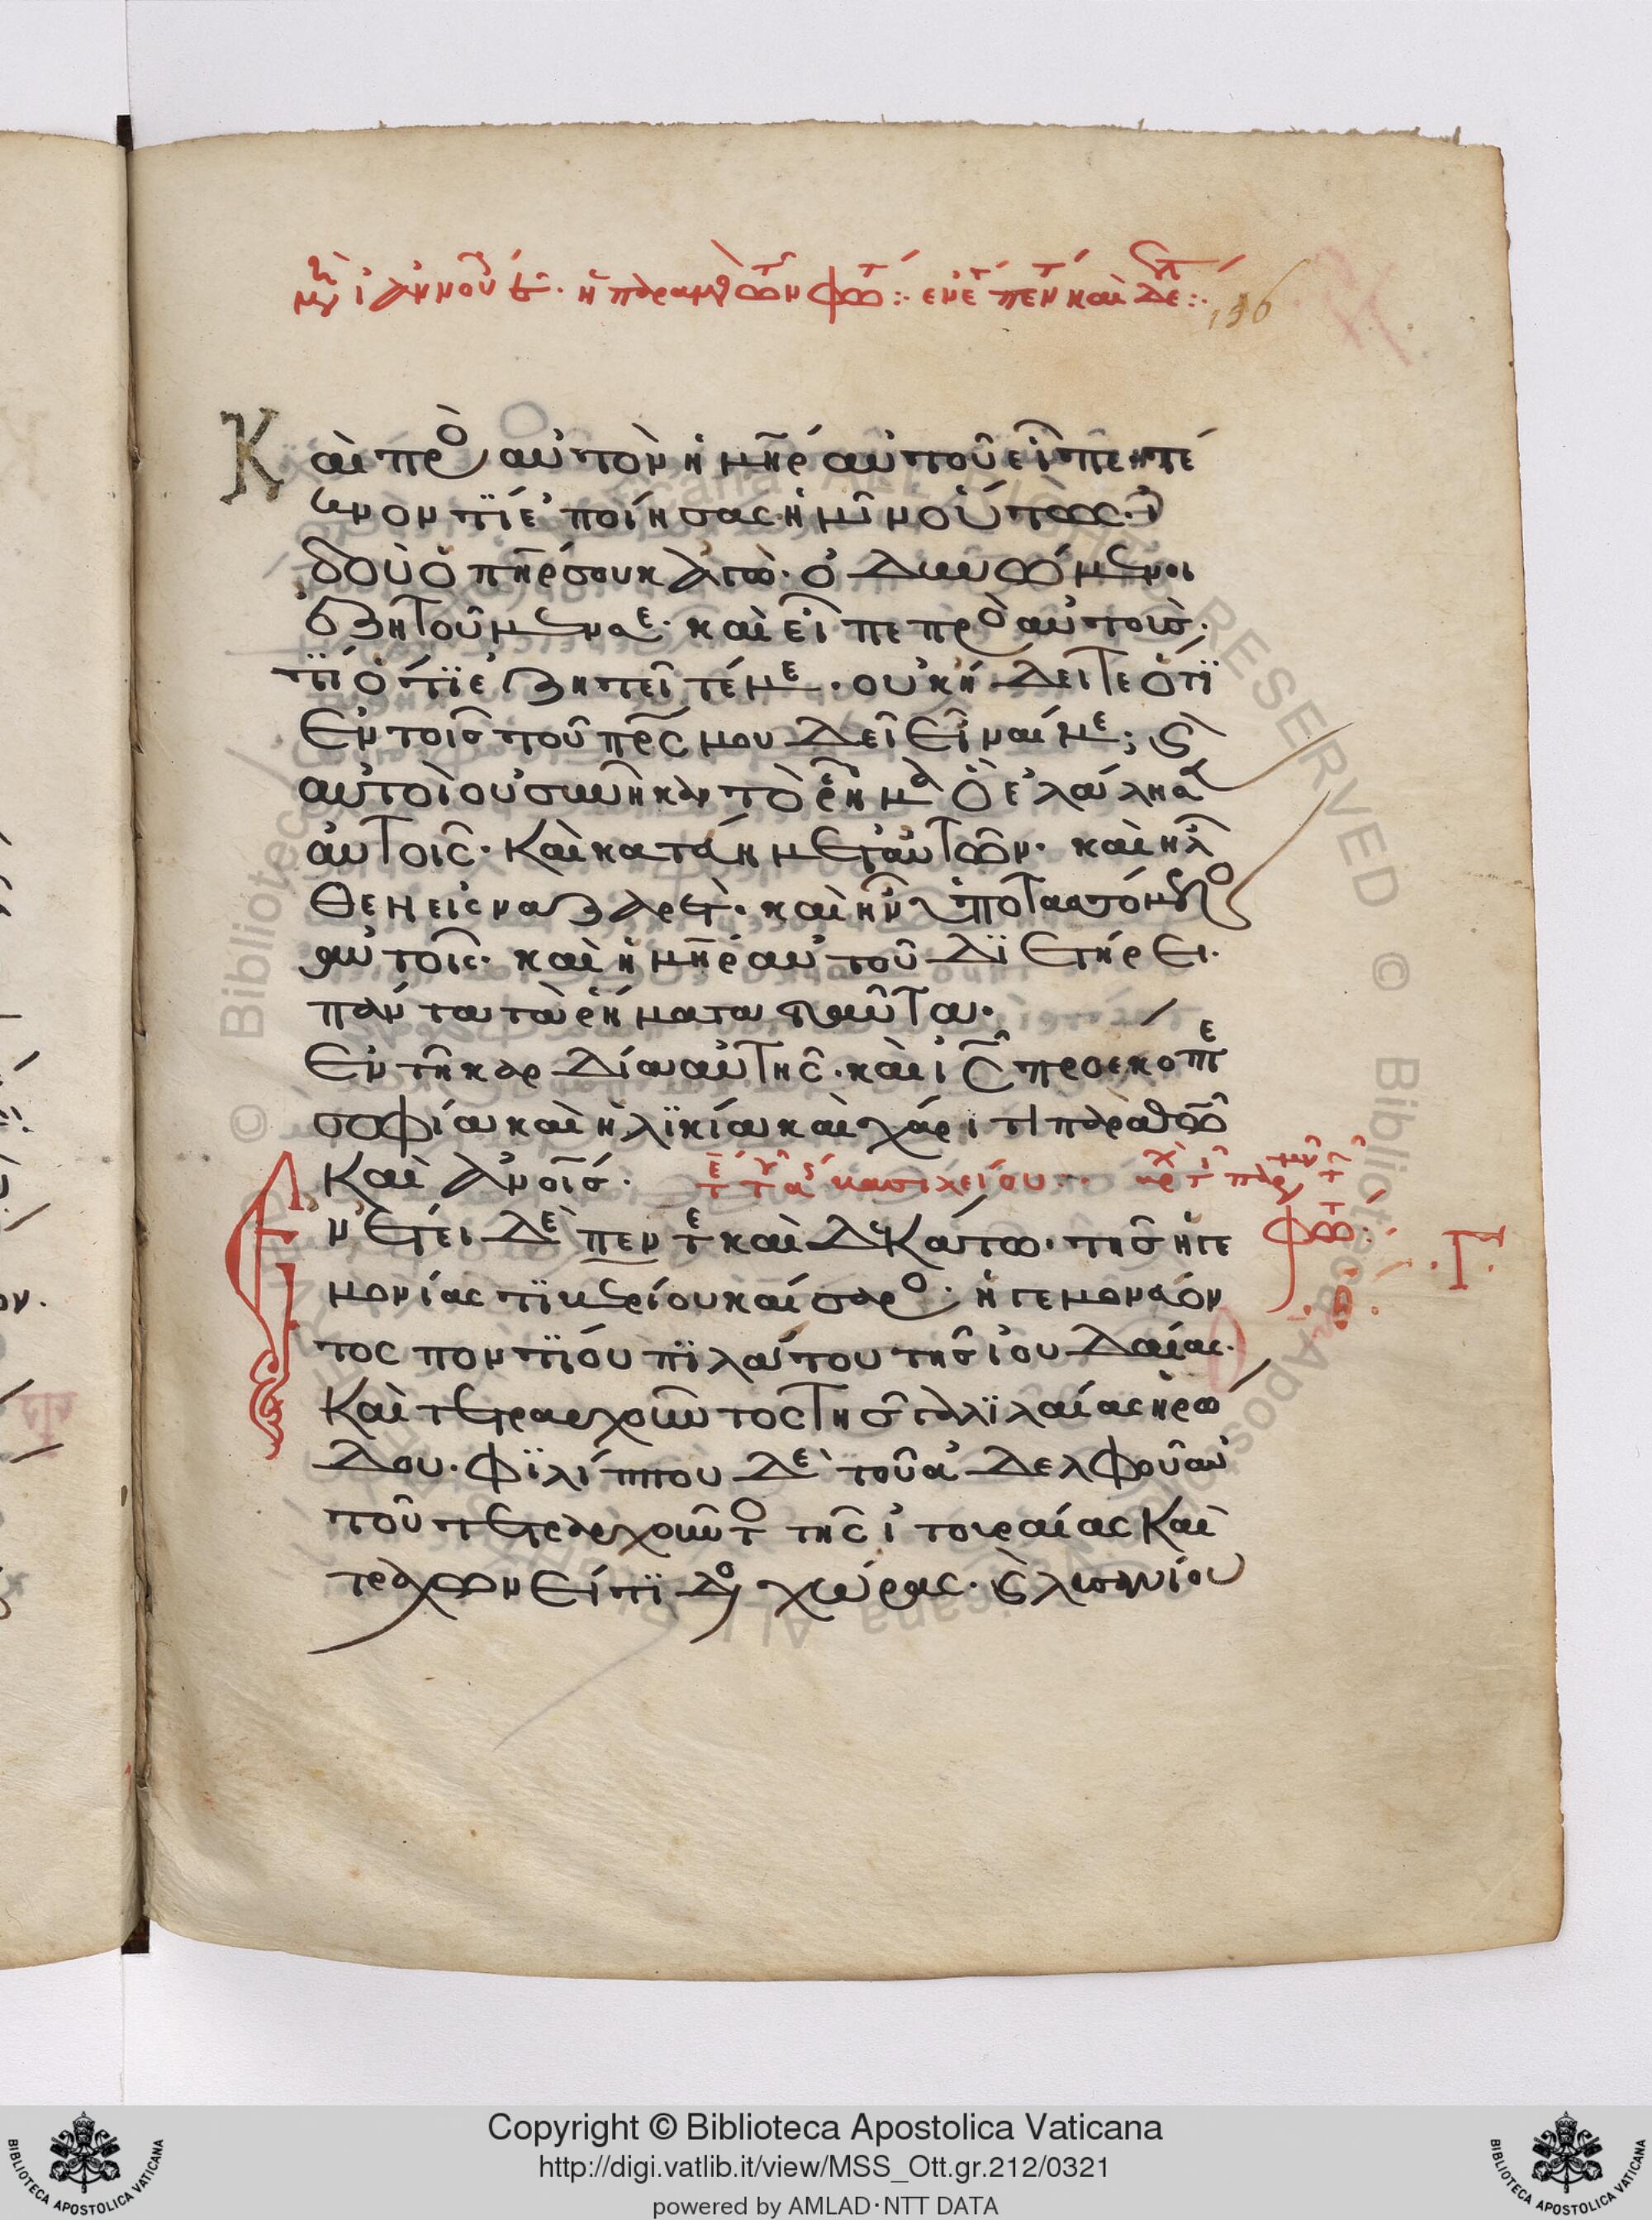 156
Καὶ πρὸς αὐτὸν ἡ μη̅ρ αὐτοῦ εἶπε· τέ
κνον τί ἐποίησας ἡμῖν οὕτως· ἰ
δοὺ ὁ πη̅ρ σου κἀγὼ ὀδυνώμενοι
ἐζητοῦμέν σε· καὶ εἶπε πρὸς αὐτοὺς·
τί ὅτι ἐζητεῖτέ με· οὐκ ἤδειτε ὅτι
ἐν τοῖς τοῦ πρ̅ς μου δεῖ εἶναί με; καὶ
αὐτοὶ οὐ συνῆκαν τὸ ῥῆμα ὃ ἐλάλησεν
αὐτοῖς· καὶ κατέβη μετ αὐτῶν· καὶ ἦλ
θεν εἰς ναζαρέτ· καὶ ἦν ὑποτασσόμενος
αὐτοῖς· καὶ ἡ μη̅ρ αὐτοῦ διετήρει
πάντα τὰ ῥήματα ταῦτα·
ἐν τῇ καρδία αὐτῆς· καὶ ι̅ς προέκοπτε
σοφία καὶ ἡλικία καὶ χάριτι παρὰ θω̅
καὶ ἀν̅οις·
Ἐν ἔτει δὲ πεντεκαιδεκάτω· τῆς ἡγε
μονίας τιβερίου καίσαρος· ἡγεμονεύον
τος ποντίου πιλάτου τῆς ἰουδαίας·
καὶ τετραρχοῦντος τῆς γαλιλαίας ἡρώ
δου· φιλίππου δὲ τοῦ ἀδελφοῦ αὐ
τοῦ τετραρχοῦντος τῆς ἰτουραίας καὶ
τραχωνείτιδος χώρας· καὶ λυσανίου
.Γ.
Copyright © Biblioteca Apostolica Vaticana
http://digi.vatlib.it/view/MSS_Ott.gr.212/0321
powered by AMLAD·NTT DATA
BIBLIOTECA APOSTOLICA VATICANA
BIBLIOTECA APOSTOLICA VATICANA